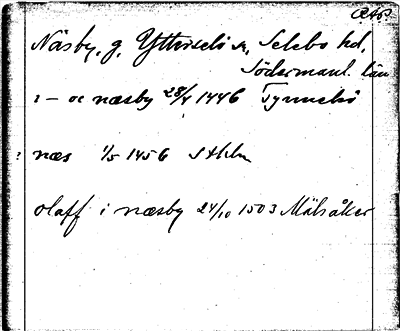 Näsby, g. Ytterselö sn, Selebo hd,
Södermanl. län
: – oc næsby 28/4 1446 Tynnelsö
: næs 1/5 1456 Sthlm
olaff i næsby 24/10 1503 Mälsåker